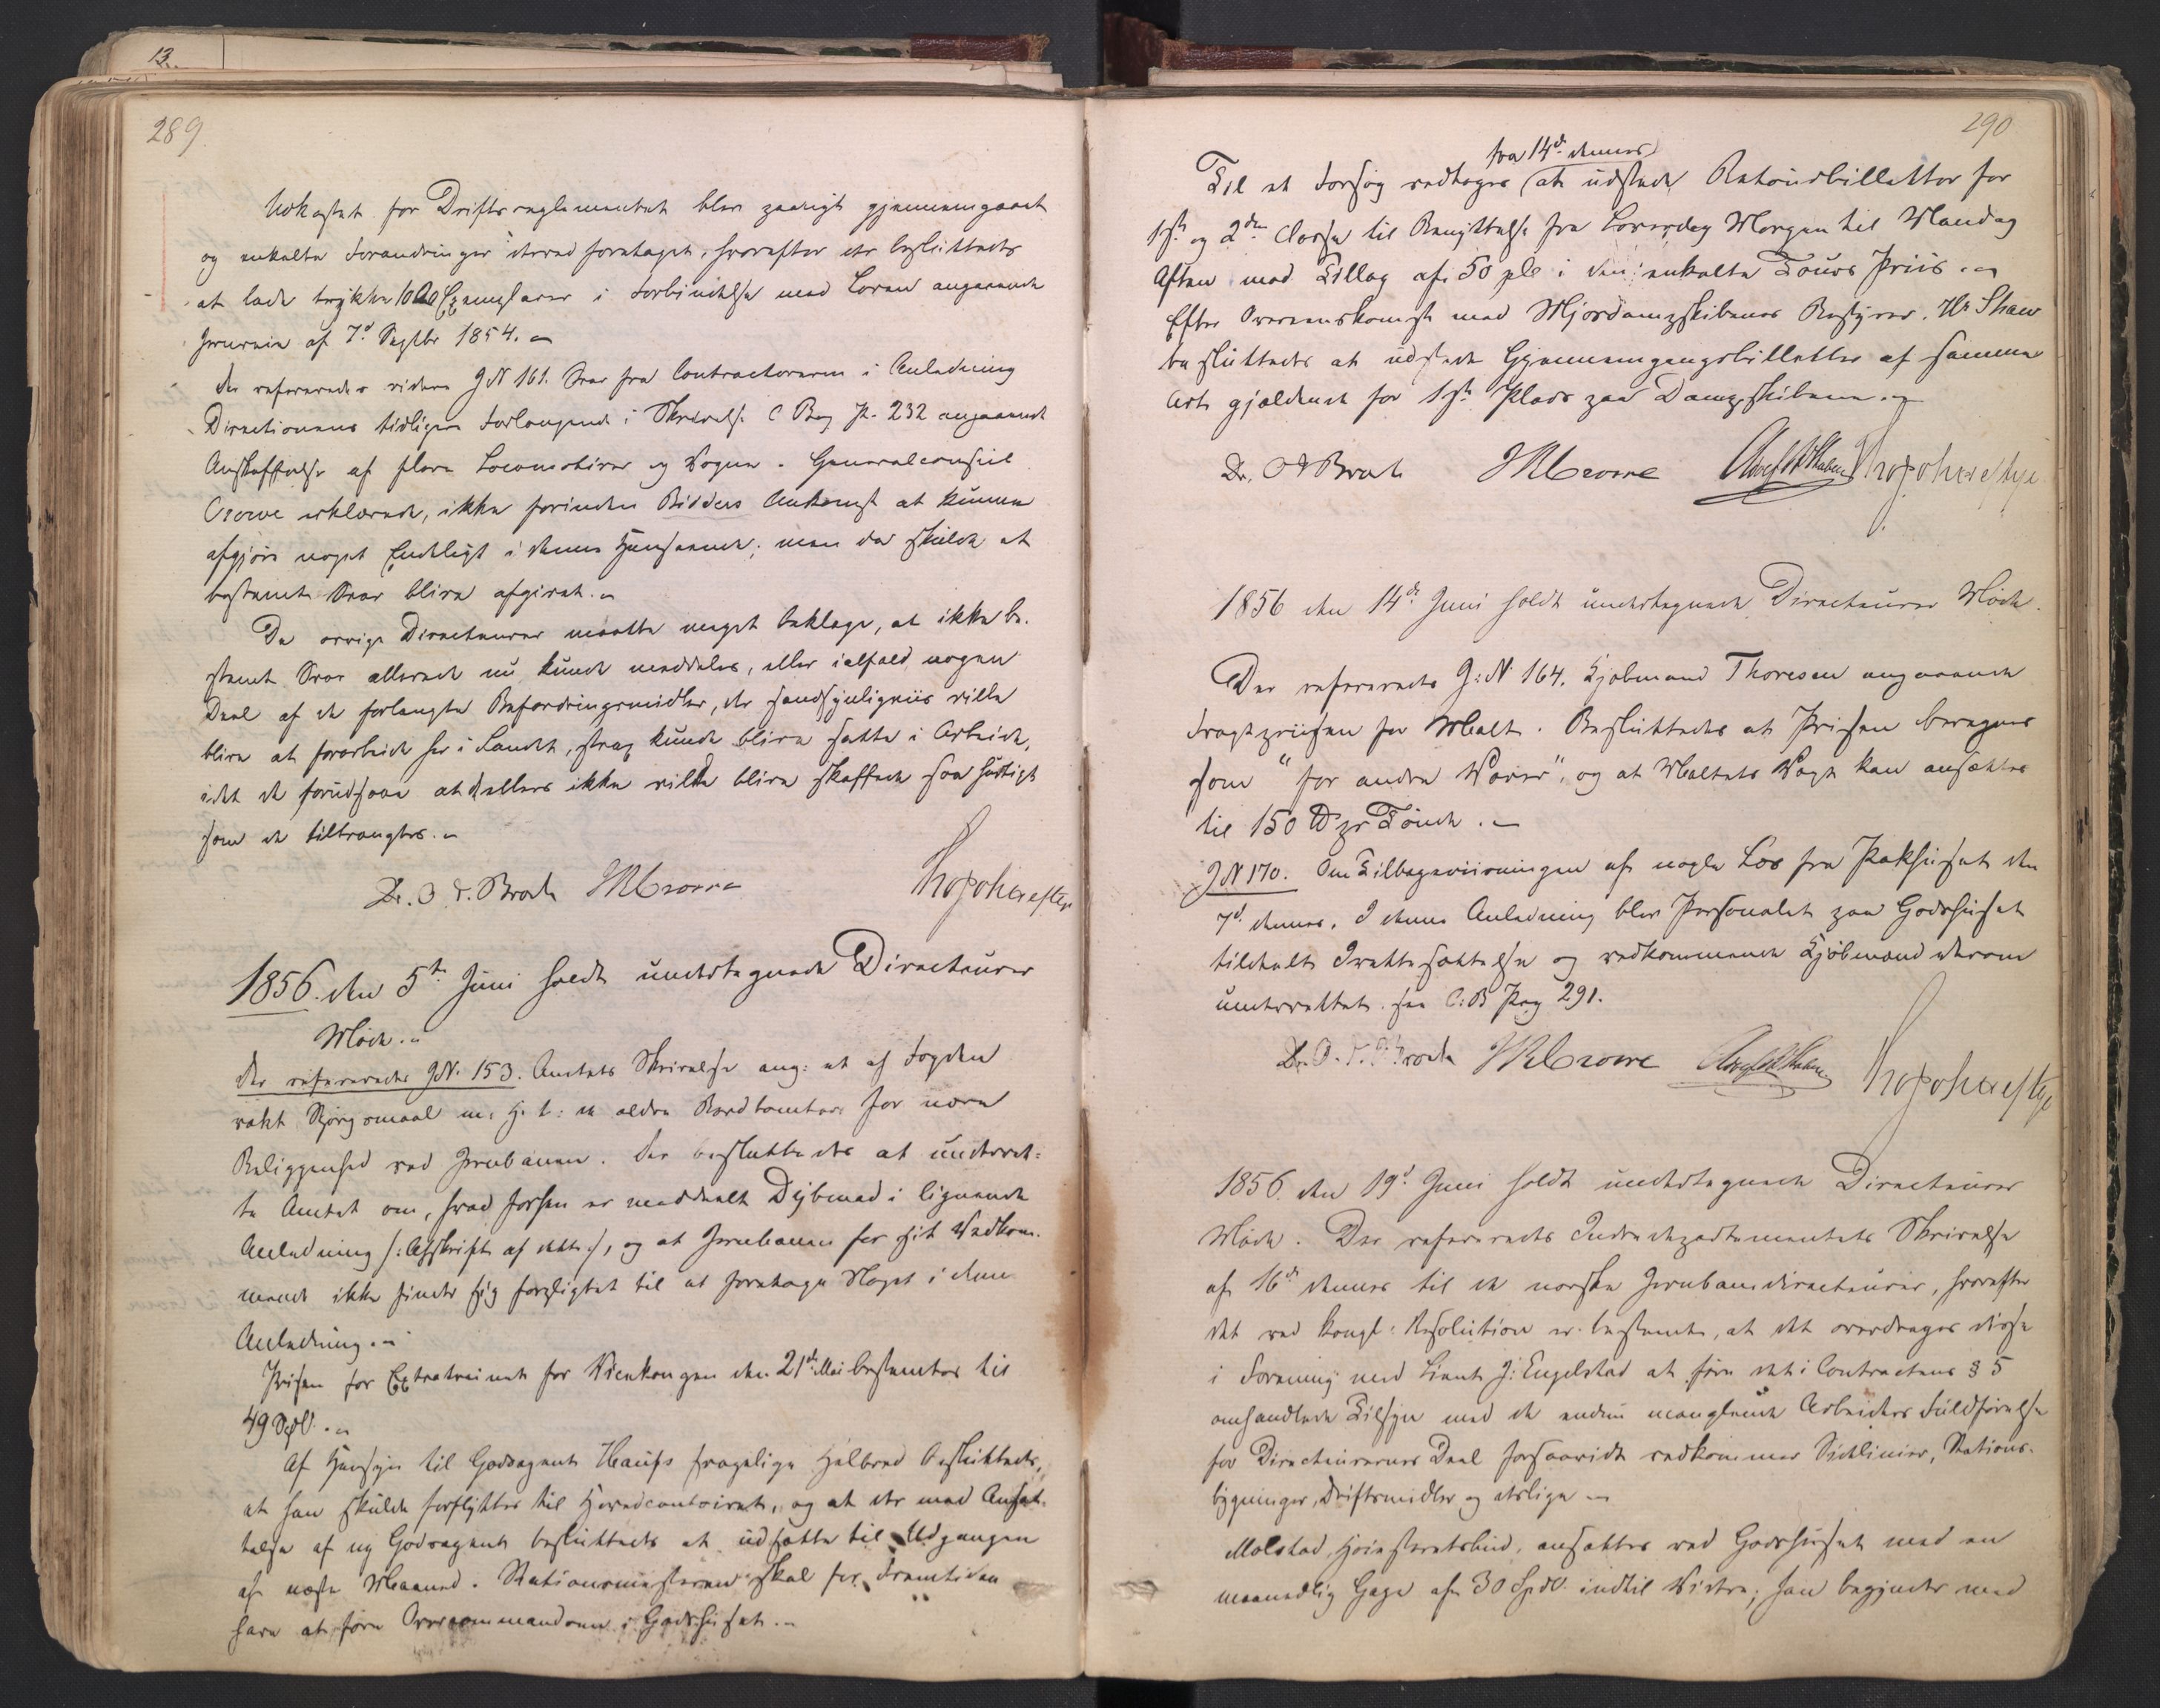 13.
289.
Udkastet for Driftsreglementet blev paanyt gjennemgaaet
og enkelte Forandringer derved foretaget, hvorefter der besluttedes
at lade trykke 1000 Exemplarer i Forbindelse med Loven angaaende
Jernveie af 7d Septbr 1854. –
Der refereredes videre J N 161. Svar fra Contractorerne i Anledning
Directionens tidligere Forlangende i Skrivelse C Bog P. 232 angaaende
Anskaffelse af flere Locomotiver og Vogne. Generalconsul
Crowe erklærede, ikke forinden Bidders Ankomst at kunne
afgjøre noget Endeligt i denne Henseende; men da skulde et
bestemt Svar blive afgivet. –
De øvrige Directeurer maatte meget beklage, at ikke be-
stemt Svar allerede nu kunde meddeles, eller ialfald nogen
Deel af de forlangte Befordringsmidler, der sandsynligviis ville
blive at forarbeide her i Landet, strax kunde blive satte i Arbeide,
idet de forudsaae at d ellers ikke vilde blive skaffede saa hurtigt
som de tiltrængtes. –
Dr. O. J. Broch JRCrowe Thojohannes Heftye
1856. den 5te Juni holdt undertegnede Directeurer
Møde. –
Der refereredes J N. 153. Amtets Skrivelse ang: et af Fogden
rakt Spørgsmaal m. H. t: de ældre Brandtomter for nære
Beliggenhed ved Jernbanen. Der besluttedes at underret-
te Amtet om, hvad forhen er meddeelt Dybwad i lignende
Anledning /: Afskrift af dette :/, og at Jernbanen for sit Vedkom-
mende ikke finder sig forpligtet til at foretage Noget i denne
Anledning. –
Prisen for Extratrainet for Vicekongen den 21de Mai bestemtes til
49 Spdl. –
Af Hensyn til Godsagent Haufs svagelige Helbred besluttedes,
at han skulde forflyttes til Hovedcontoiret, og at der med Ansæt-
telse af ny Godsagent besluttedes at udsætte til Udgangen
af næste Maaned. Stationsmesteren skal for Fremtiden
have at føre Overcommandoen i Godshuset. –
290
fra 14de dennes
Til et Forsøg vedtoges at udstede Retourbilletter for
1ste og 2den Classe til Benyttelse fra Løverdag Morgen til Mandag
Aften mod Tillæg af 50 pCt i den enkelte Tours Priis. –
Efter Overeenskomst med Mjøsdampskibenes Bestyrer, Hr Shaw
besluttedes at udstede Gjennemgangsbilletter af samme
Art gjældende for 1ste Plads paa Dampskibene. –
Dr. O J Broch JRCrowe Thojohannes Heftye
1856 den 14de Juni holdt undertegnede Directeurer Møde.
Der refereredes J: N 164. Kjøbmand Thoresen angaaende
Fragtpriisen for Malt. Besluttedes at Prisen beregnes
som "for andre Varer", og at Maltets Vægt kan ansættes
til 150 ℔ pr Tønde. –
J N 170. Om Tilbageviisningen af nogle Læs fra Pakhuset den
7d dennes. I denne Anledning blev Personalet paa Godshuset
tildeelt Irettesættelse og vedkommende Kjøbmænd derom
underrettet. see C: B Pag 291.
Dr. O. J. Broch JRCrowe Thojohannes Heftye
1856. den 19d Juni holdt undertegnede Directeurer
Møde. Der refereredes Indredepartementets Skrivelse
af 16de dennes til de norske Jernbanedirecteurer, hvorefter
det ved kongl: Resolution er bestemt, at det overdrages disse
i Forening med Lieut J: Engelstad at føre det i Contractens § 5
omhandlede Tilsyn med de endnu manglende Arbeiders Fuldførelse
for Directeurernes Deel forsaavidt vedkommer Sidelinier, Stations-
bygninger, Driftsmidler og deslign –
Molstad, Høiesteretsbud, ansættes ved Godshuset med en
maanedlig Gage af 30 Spdl. indtil Videre; han begynder med